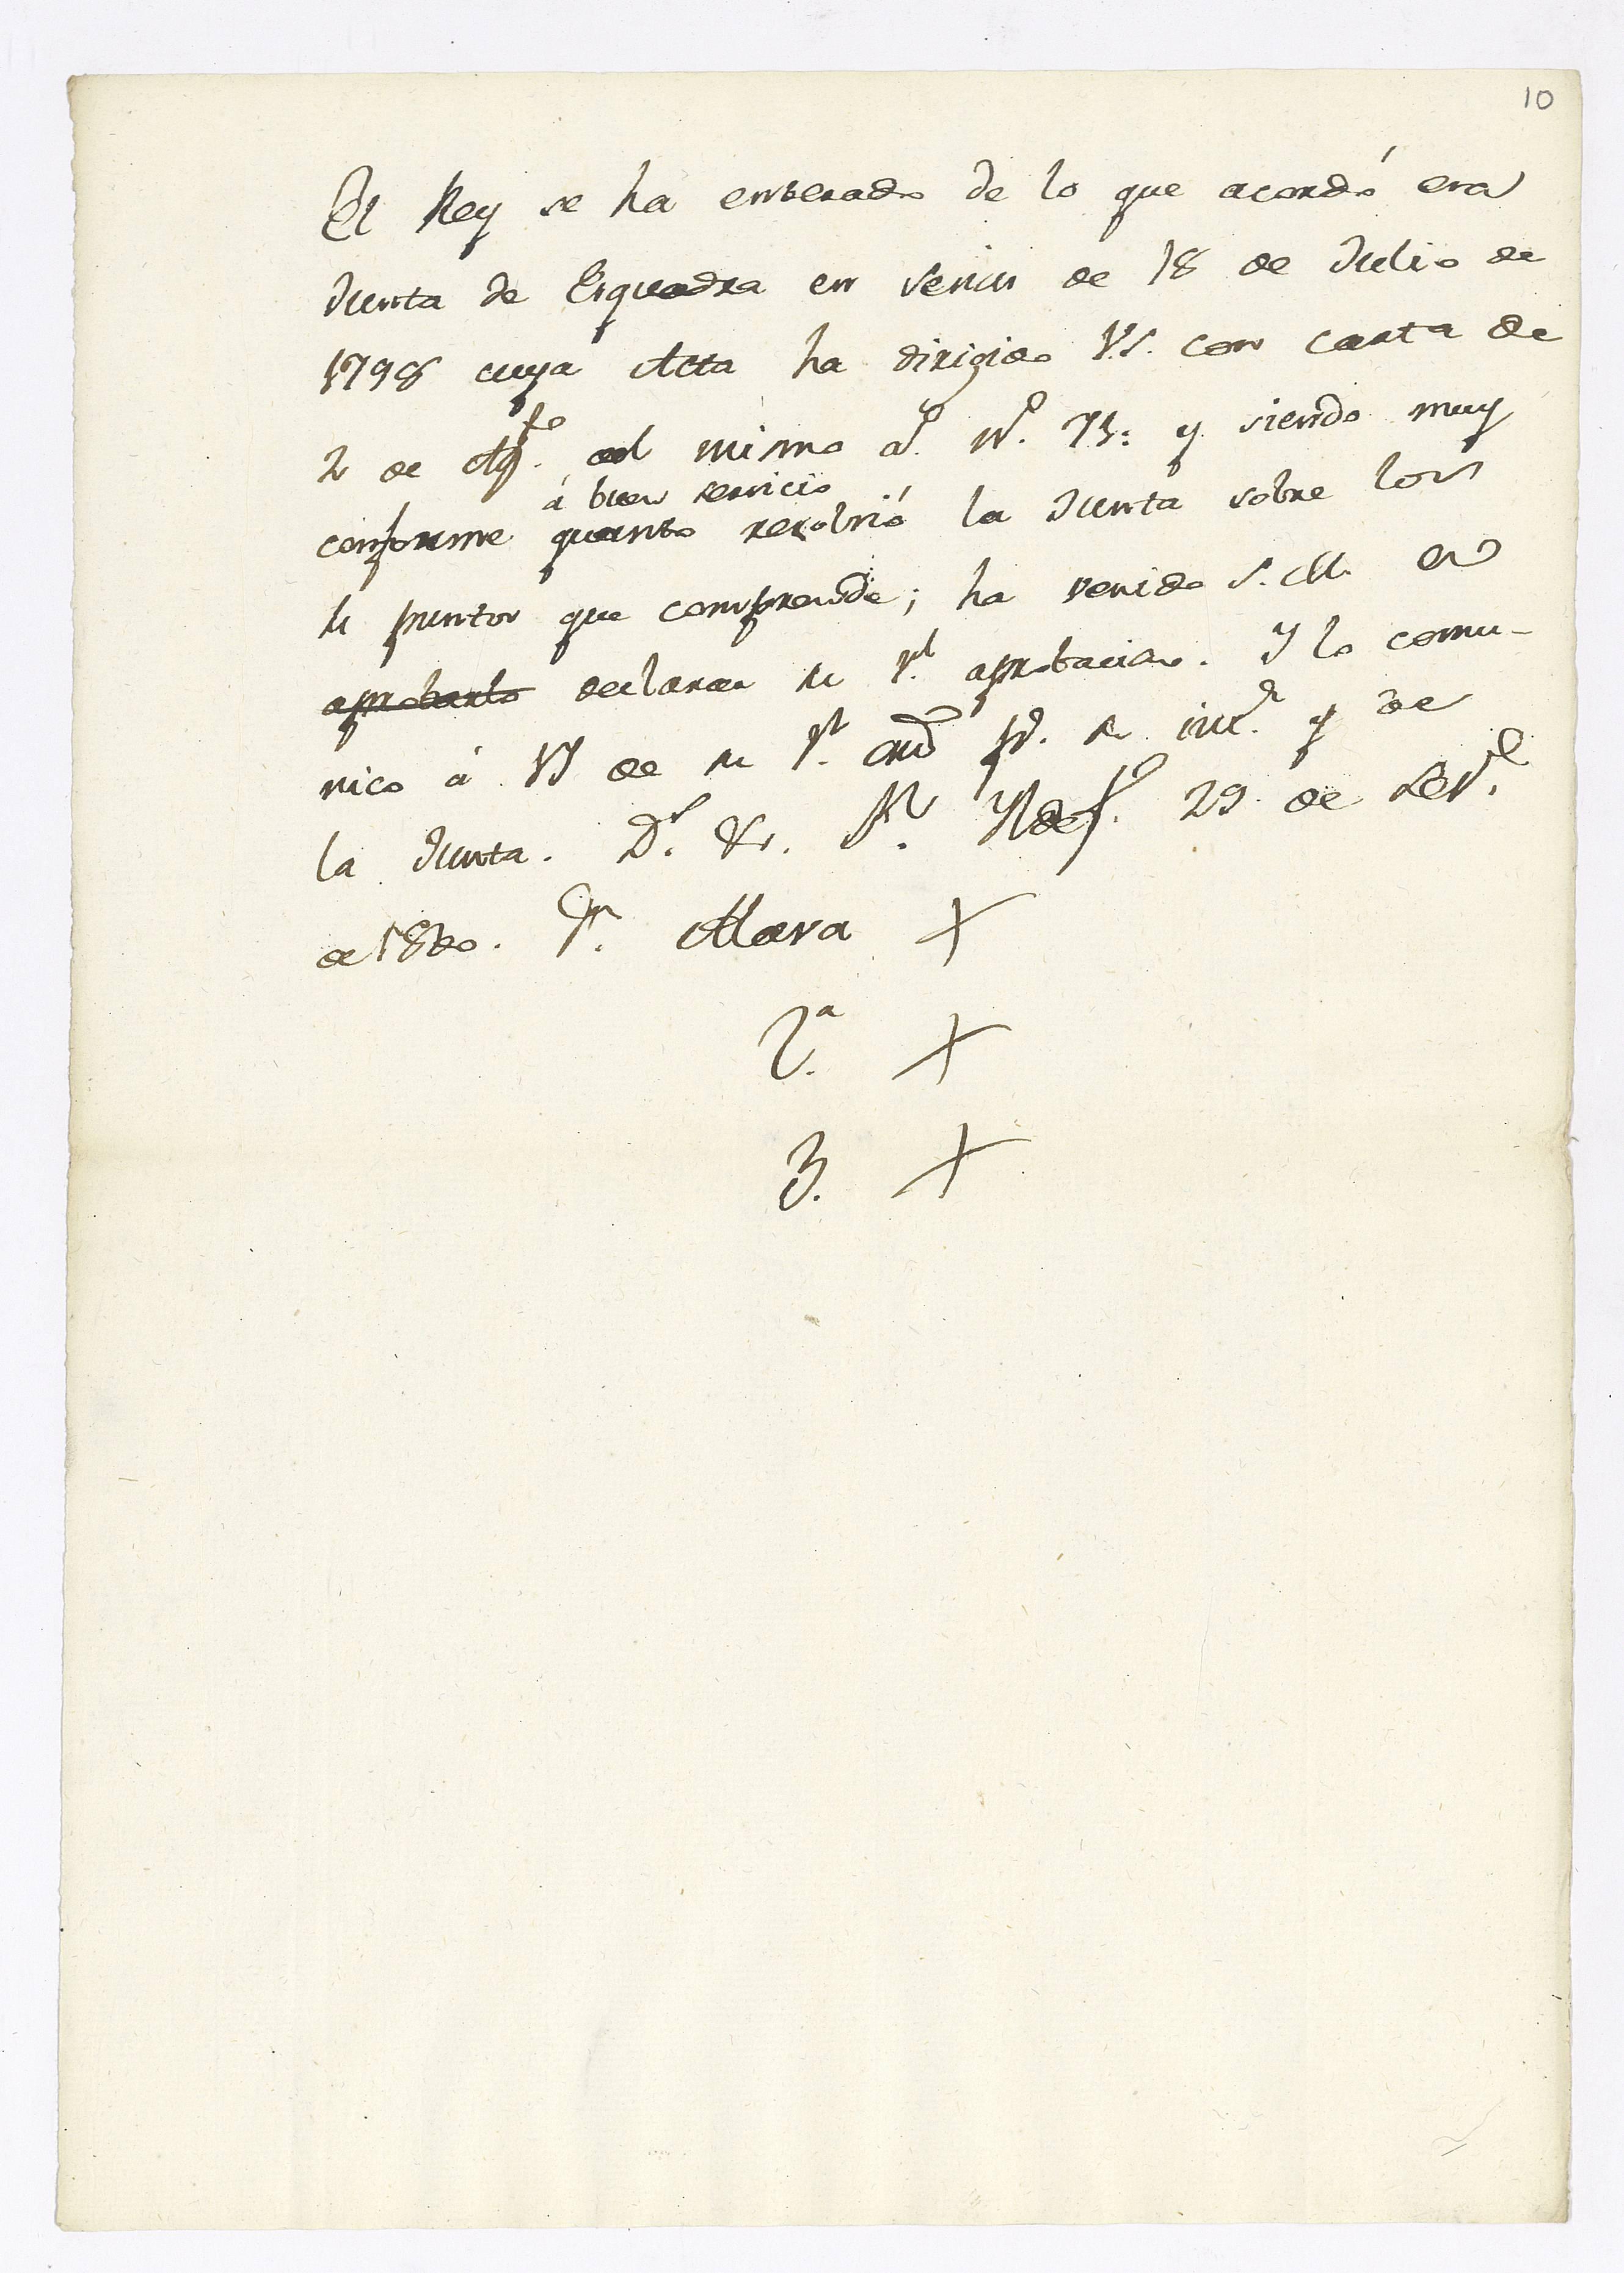 10
El Rey se ha enterado de lo que acordó esa
Junta de Esquadra en sesion de 18 de Julio de
1798 cuya Acta ha dirigido V.S. con carta de
2 de Agto. del mismo aº. nº. 73: y siendo muy
á buen servicio
conforme quanto resolvió la Junta sobre los
11 puntos que comprende; ha venido S.M. en
aprobarlo declarar su rl. aprobacion. Y lo comu-
nico á VS de su rl. ordn pª. su intª. y de
la Junta. Ds. &c. Sn. Yldefº. 29 de Sepe.
de 1800. Sr. Alava +
2.a +
3. +